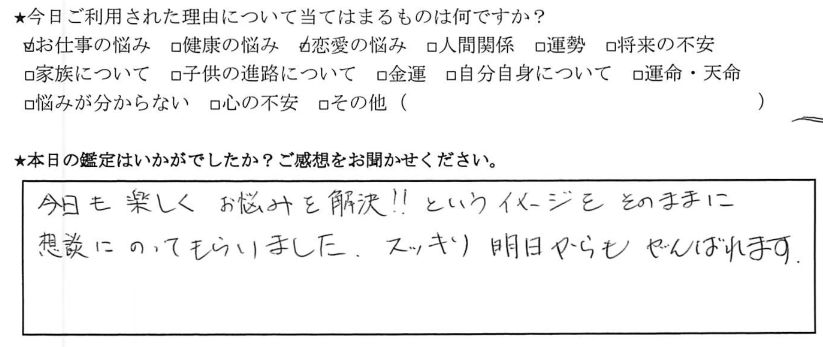 ★今日ご利用された理由について当てはまるものは何ですか？
☑お仕事の悩み □健康の悩み ☑恋愛の悩み □人間関係 □運勢 □将来の不安
□家族について □子供の進路について □金運 □自分自身について □運命・天命
□悩みが分からない □心の不安 □その他（ ）
★本日の鑑定はいかがでしたか？ご感想をお聞かせください。
今日も楽しくお悩みを解決!!というイメージをそのままに
想談にのってもらいました. スッキリ明日からもがんばれます.